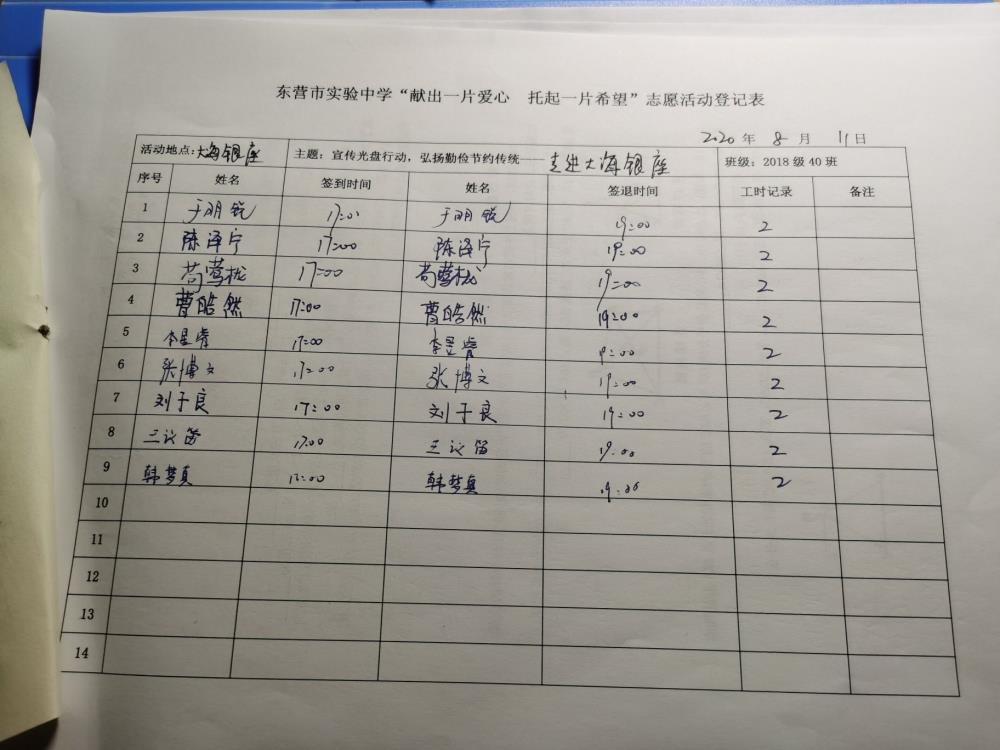 东营市实验中学“献出一片爱心 托起一片希望”志愿活动登记表
2020 年 8 月 11 日
活动地点: 大海银座 主题：宣传光盘行动，弘扬勤俭节约传统——走进大海银座 班级：2018 级 40 班
序号 姓名 签到时间 姓名 签退时间 工时记录 备注
1 于明锐 17:00 于明锐 19:00 2
2 陈泽宁 17:00 陈泽宁 19:00 2
3 17:00 19:00 2
4 曹皓然 17:00 曹皓然 19:00 2
5 李昱睿 17:00 李昱睿 19:00 2
6 张博文 17:00 张博文 19:00 2
7 刘于良 17:00 刘于良 19:00 2
8 17:00 19:00 2
9 韩梦真 17:00 韩梦真 19:00 2
10
11
12
13
14